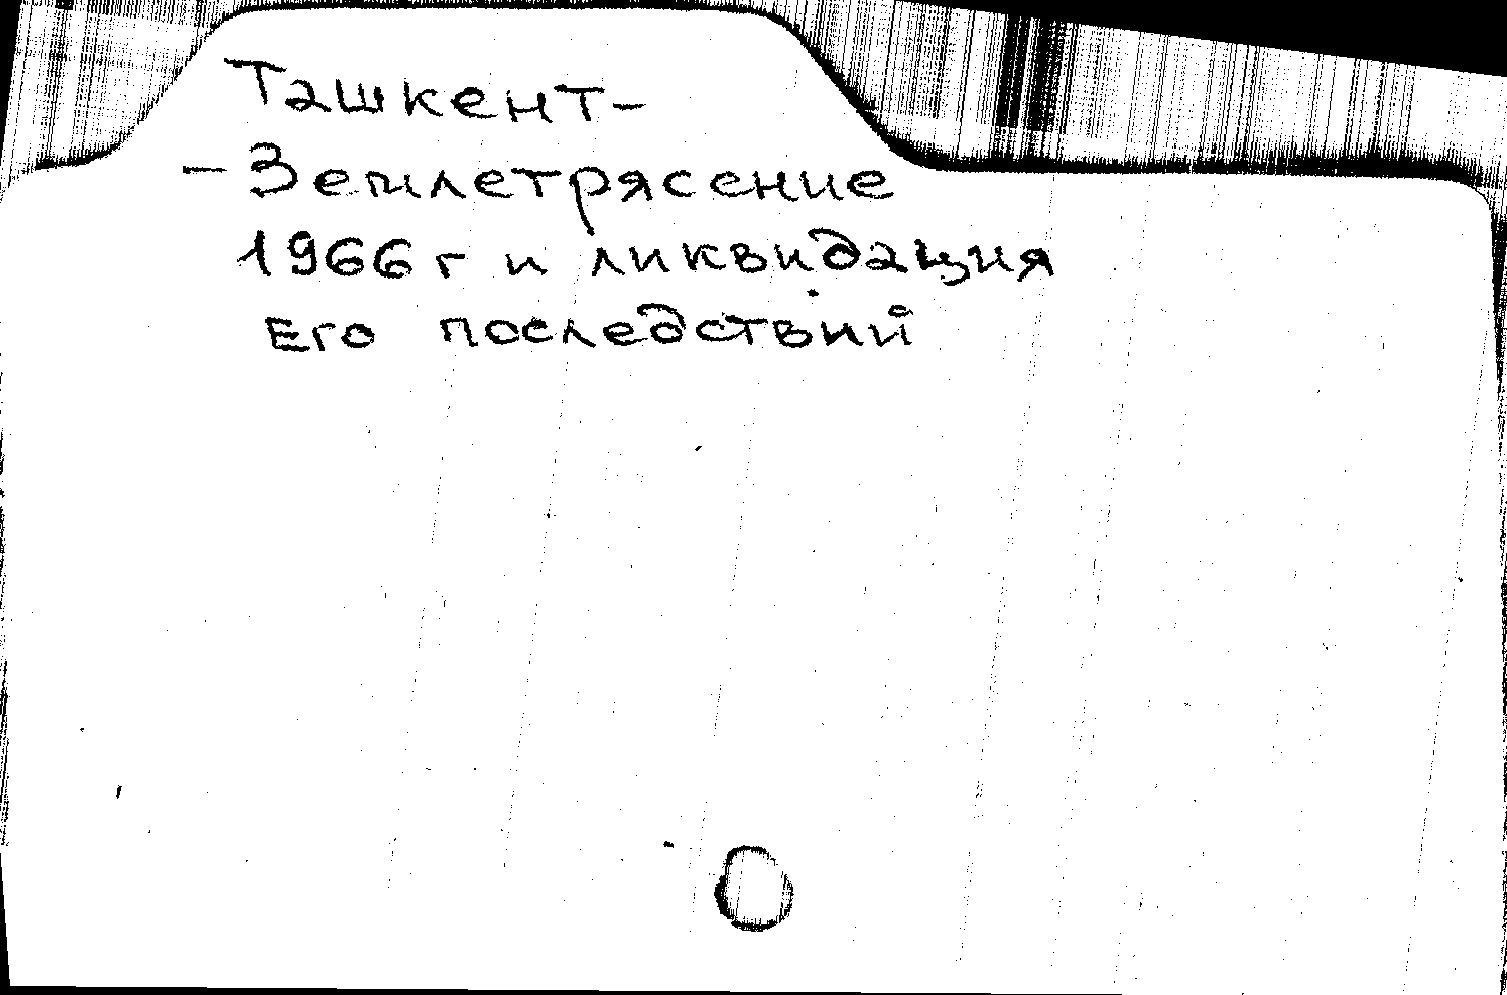 Ташкент-
- Землетрясение
1966 г и ликвидация
Его последствий